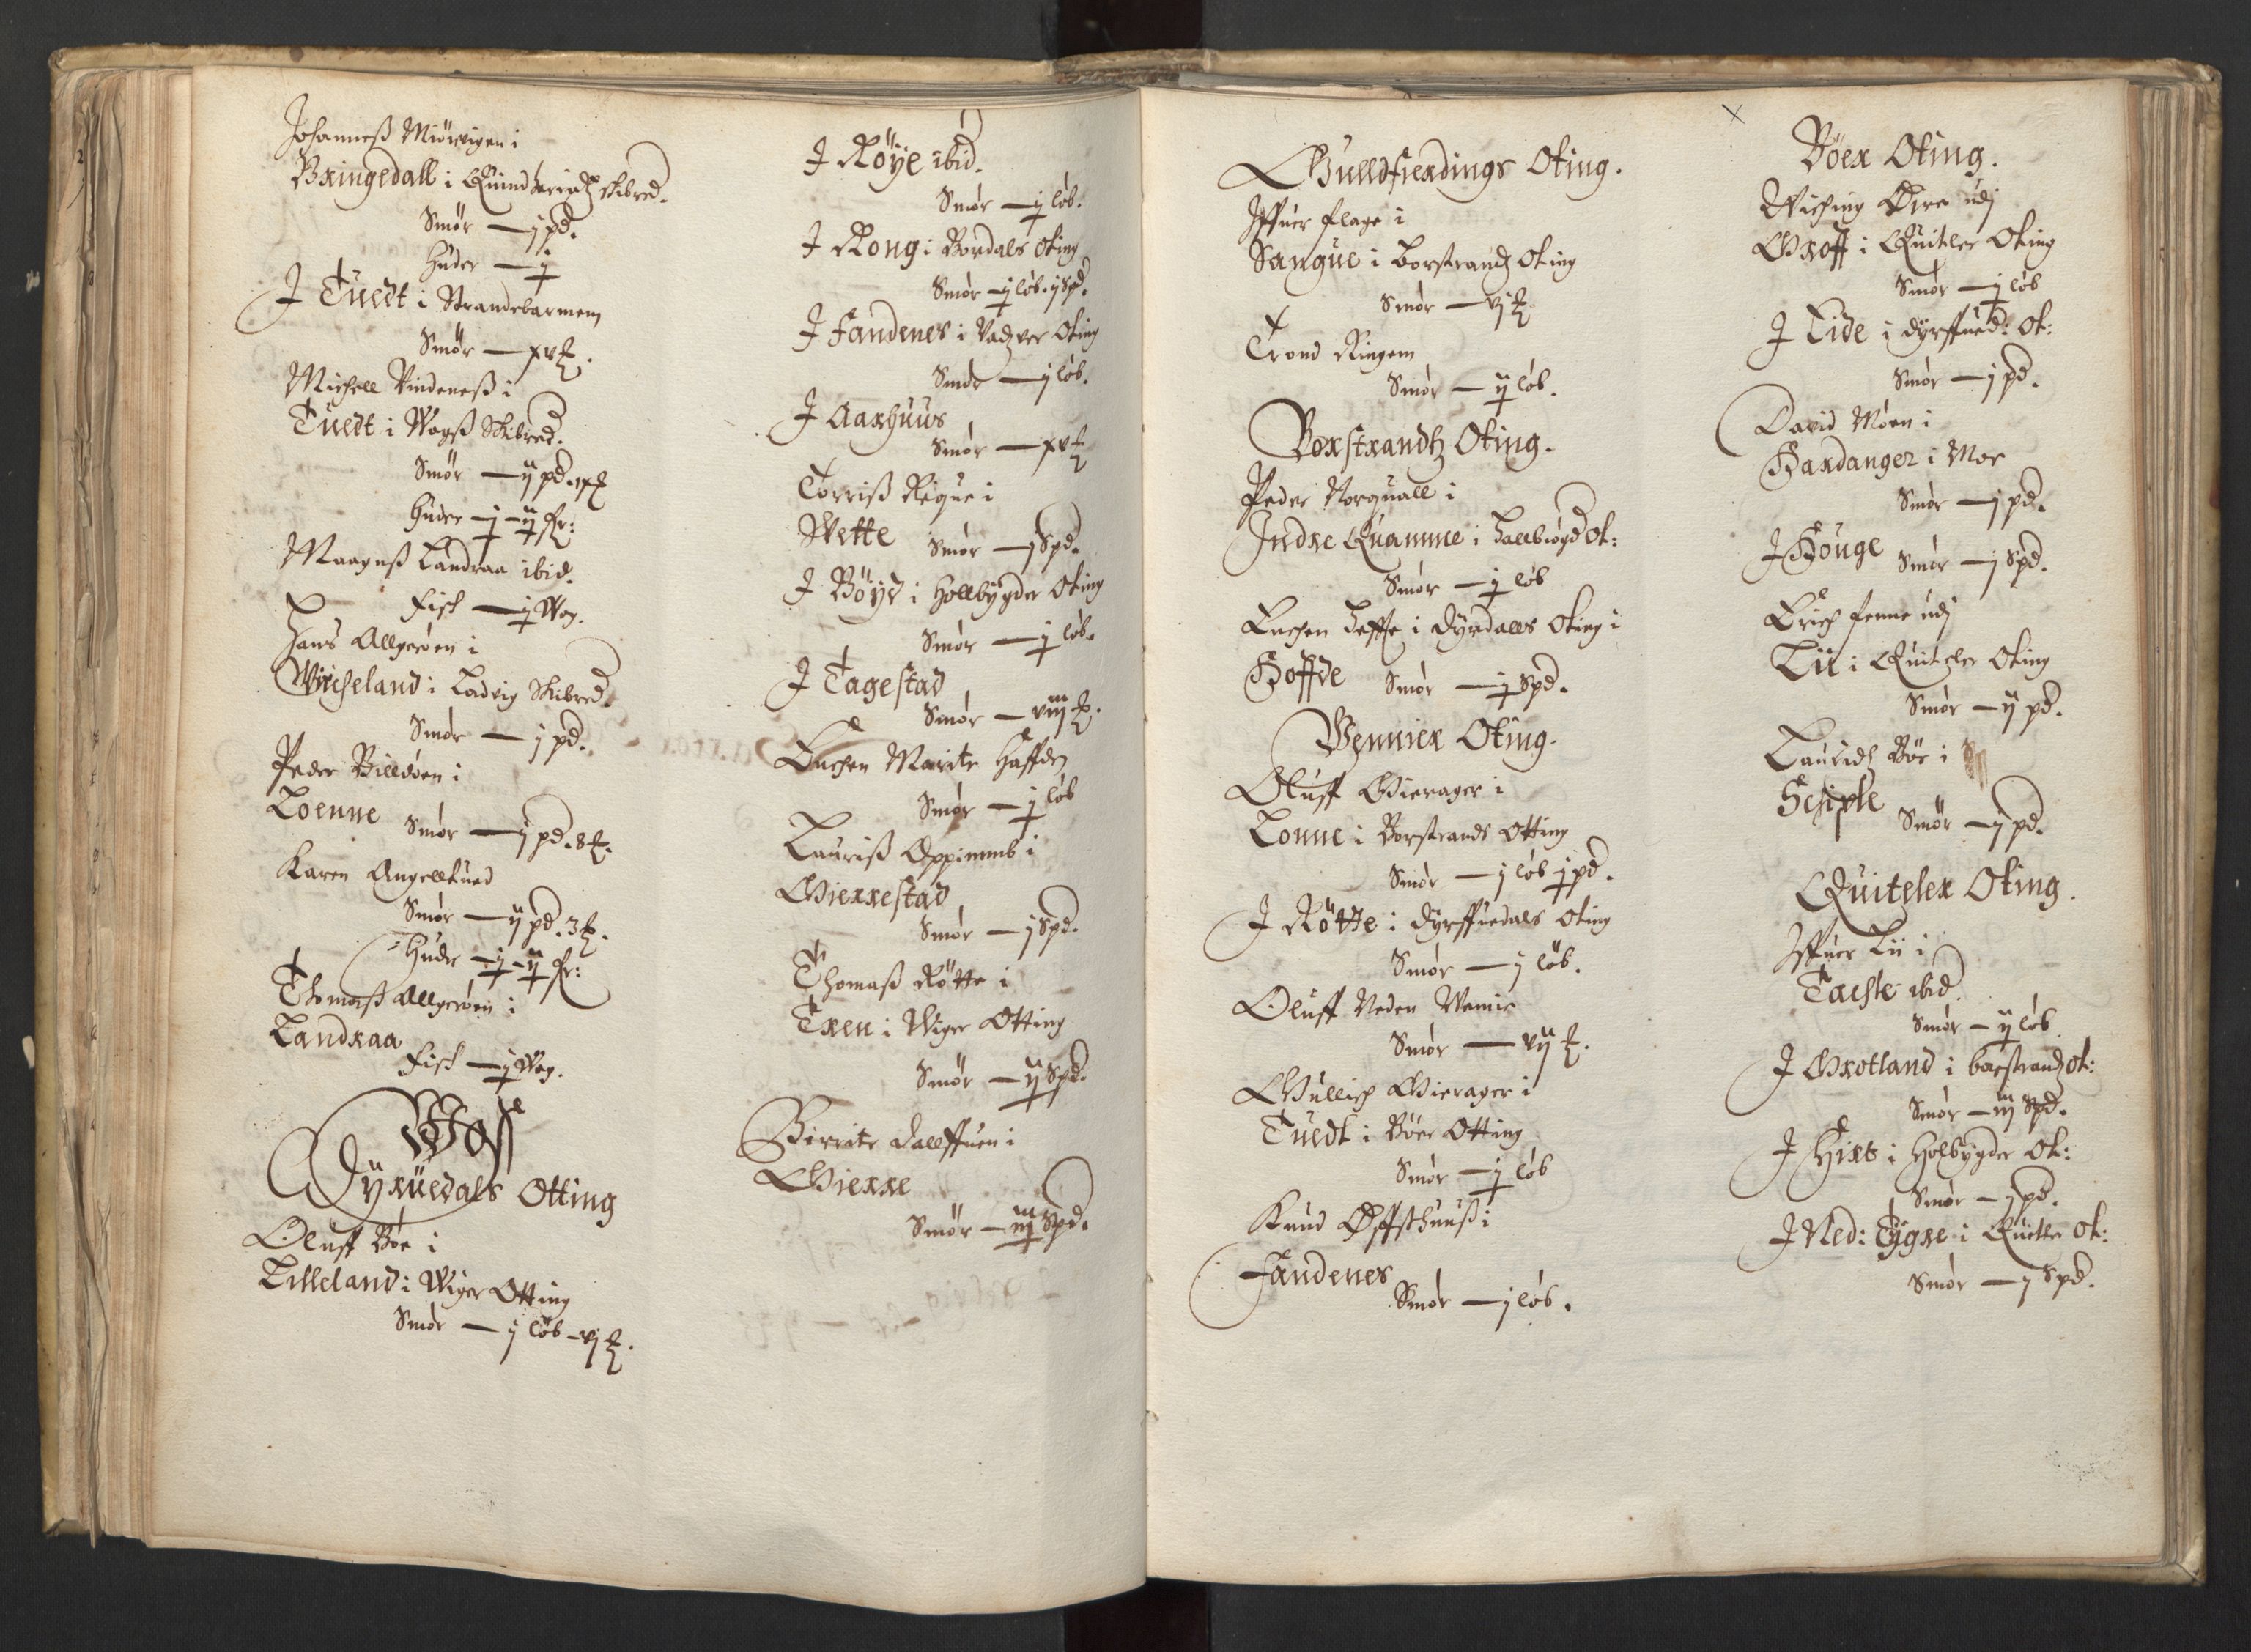 Johanneß Miørvigen i
Bringedall i Quindherritz skibred.
Smør — j pd.
Huder — j
J Tuedt i Strandebarmen
Smør — xv ℔.
Michell Vindeneß i
Tuedt i Wogß Skibred.
Smør — ij pd. ix ℔
Huder — j — ij fr:
Maagnß Landraa ibid.
Fisk — j Wog.
Hans Allgerøen i
Wircheland i Ladvig Skibred.
Smør — j pd.
Peder Billdøen i
Loenne Smør — j pd. 8 ℔.
Karen Angelltued
Smør — ij pd. 3 ℔.
Huder — j — ij fr:
Thomaß Allgerøen i
Landraa
Fisk — j Wog.
Woß
Dyruedals Otting
Oluff Bøe i
Lilleland i Wiger Otting
Smør — j løb — vj ℔.
J Røye ibid.
Smør — j løb.
J Rong i Bordals Oting
Smør — j løb. j Spd.
J Fandenes i Vadzver Oting
Smør — j løb.
J Aarhuus
Smør — xv ℔
Torriß Reque i
Wette Smør — j Spd.
J Bøyd i Hollbygder Oting
Smør — j løb.
J Tagestad
Smør — viij ℔.
Enchen Marite Haffden
Smør — j løb
Lauriß Oppimmb i
Gierrestad
Smør — j Spd.
Thomaß Røtte i
Tren i Wiger Otting
Smør — ij Spd.
Birrite Dallffuen i
Gierre
Smør — iij Spd.
Gulldfierdings Oting.
Jffuer Flage i
Sangue i Borstrandz Oting
Smør — vj ℔
Trond Ringem
Smør — ij løb.
Borstrandtz Oting.
Peder Norquall i
Indre Quamme i Hallbiøgd Ot:
Smør — j løb
Enchen Heffte i Dyrdalls Oting i
Hoffde Smør — j Spd.
Wennier Oting.
Oluff Gierager i
Lonne i Borstrands Otting
Smør — j løb j pd.
J Røtte i Dyrffuedals Oting
Smør — j løb.
Oluff Neden Wemie
Smør — vij ℔.
Gullich Gierager i
Tuedt i Bøer Otting
Smør — j løb
Knud Øffsthuuß i
Fandenes
Smør — j løb.
Bøer Oting.
Wiching Øire udj
Groff i Quitler Oting
Smør — j løb
J Lide i Dyrffued: Ot:
Smør — j pd.
David Møen i
Hardanger i Mor
Smør — j pd.
J Houge Smør — j Spd.
Erich Fenne udj
Lii i Quitzler Oting
Smør — ij pd.
Lauridz Bøe i
Heiple Smør — j pd.
Quitzler Oting.
Jffuer Lii i
Taiste ibid.
Smør — ij løb
J Grotland i Borstrandz Ot:
Smør — iij Spd.
J Hirt i Holbygder Ot:
Smør — j pd.
J Ned: Tygre i Quitler Ot:
Smør — j Spd.